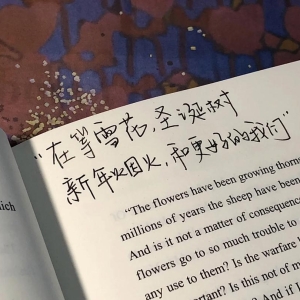 “在等雪花，圣诞树
新年烟火，和更好的我们”
“The flowers have been growing thorn
millions of years the sheep have been
And is it not a matter of consequence
flowers go to so much trouble to
any use to them? Is the warfare b
ortant? Is this not of m
And if I
ich